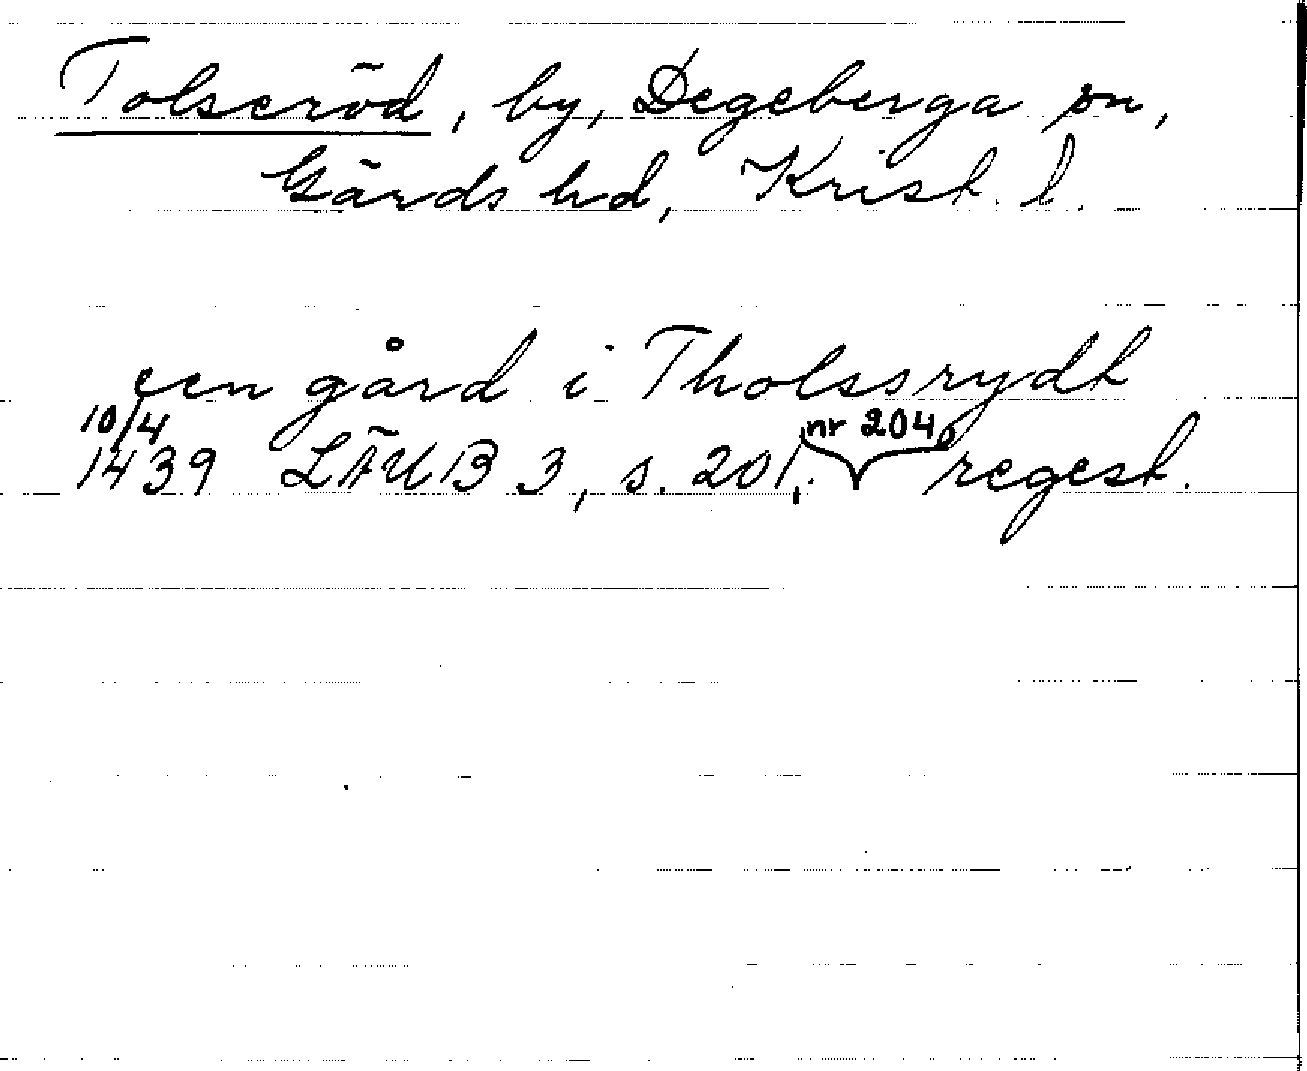 Tolseröd, by, Degeberga sn,
Gärds hd, Krist. l.
een gård i Tholssrydh
10/4
1439 LÄUB 3, s. 201, nr 204, regest.